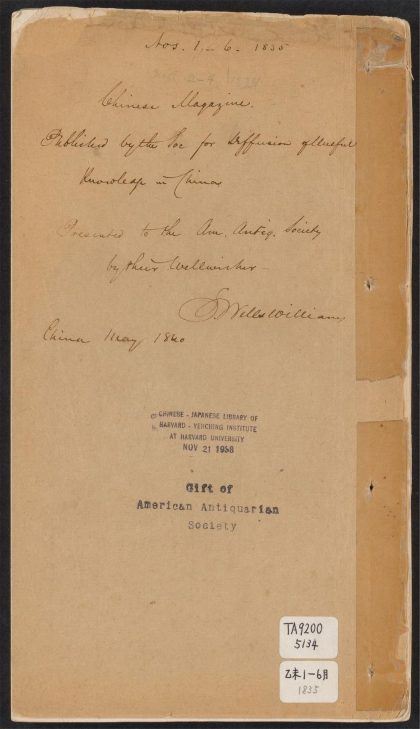 Nos. 1.- 6- 1835
Chinese Magazine.
Published by the Soc for Diffusion of Useful
Knowledge in China
Presented to the Am. Antiq. Society
by their Wellwisher -
S. Wells Williams
China May 1840
CHINESE - JAPANESE LIBRARY OF
HARVARD - YENCHING INSTITUTE
AT HARVARD UNIVERSITY
NOV 21 1958
Gift of
American Antiquarian
Society
TA9200
5134
乙未1-6月
1835